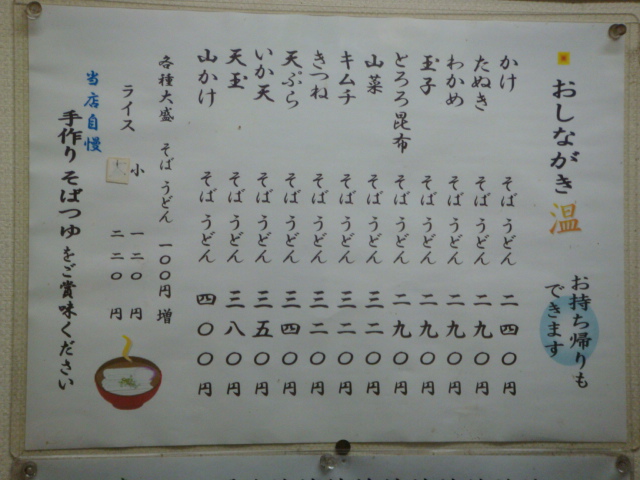 おしながき 温
お持ち帰りも
できます
かけ そば うどん 二四〇円
たぬき そば うどん 二九〇円
わかめ そば うどん 二九〇円
玉子 そば うどん 二九〇円
とろろ昆布 そば うどん 二九〇円
山菜 そば うどん 三二〇円
キムチ そば うどん 三二〇円
きつね そば うどん 三二〇円
天ぷら そば うどん 三四〇円
いか天 そば うどん 三五〇円
天玉 そば うどん 三八〇円
山かけ そば うどん 四〇〇円
各種大盛 そば うどん 一〇〇円増
ライス 小 一二〇円
大 二二〇円
当店自慢
手作りそばつゆをご賞味ください